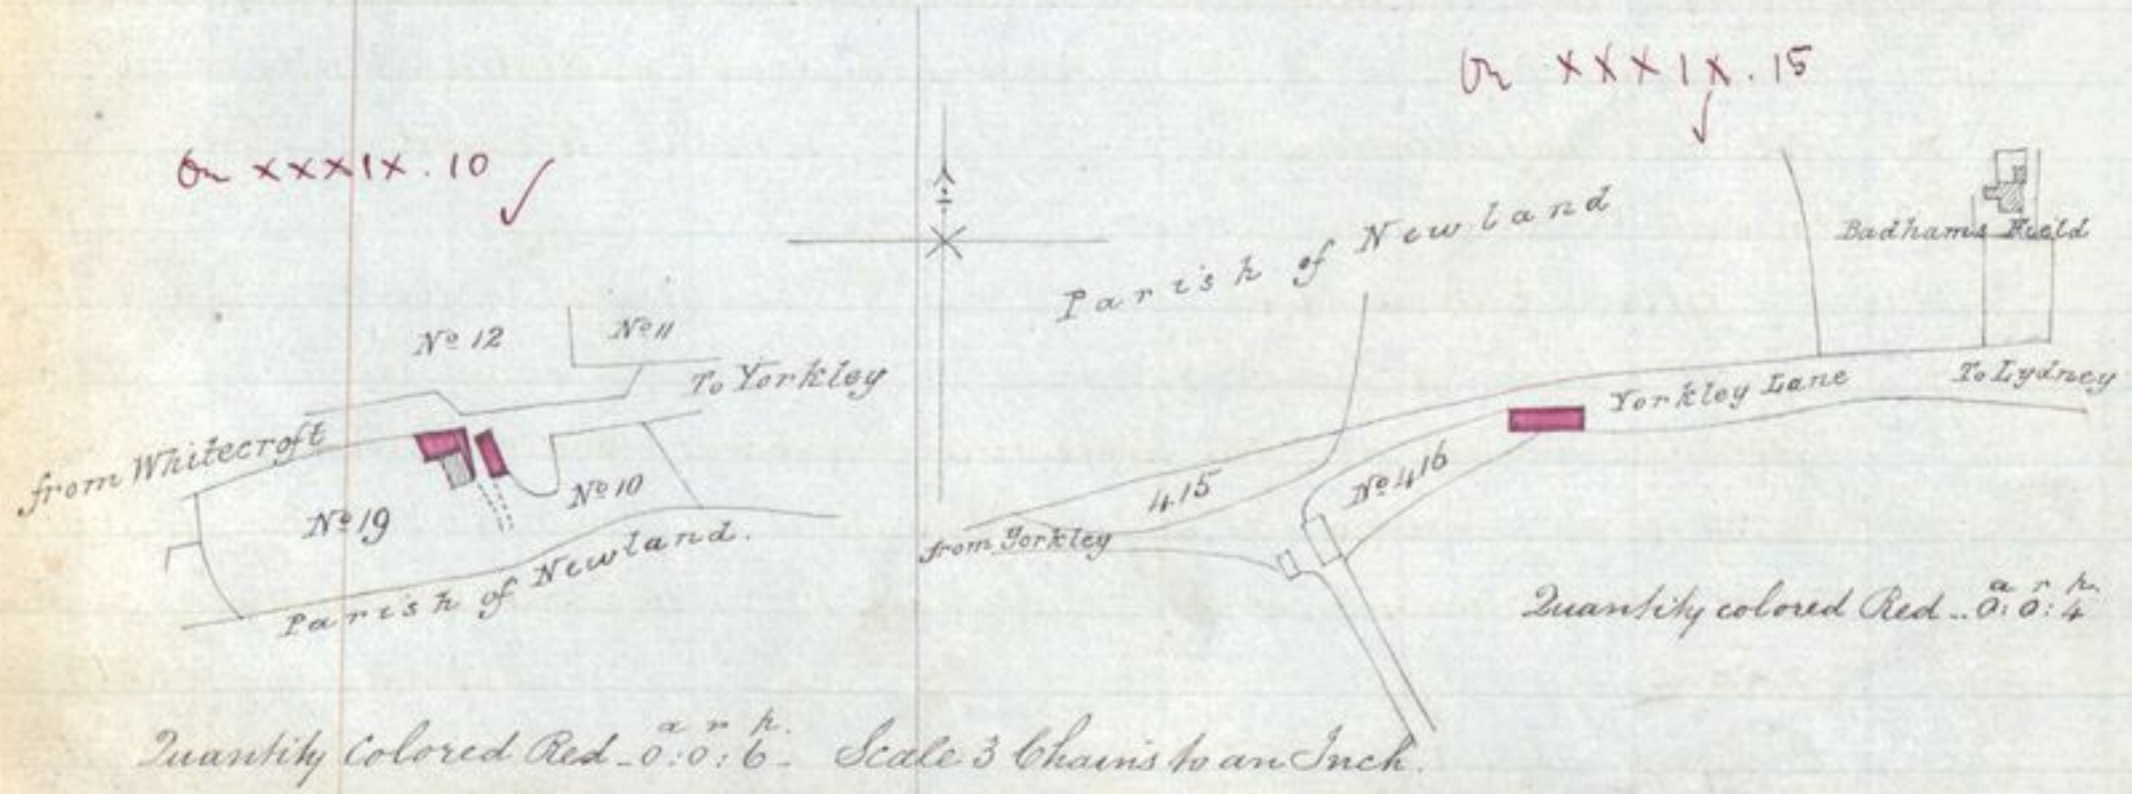 On XXXIX.10
No 12
No 11
To Yorkley
from Whitecroft
No 19
No 10
Parish of Newland.
Quantity Colored Red - 0:0:6 -
a r p.
Scale 3 Chains to an Inch.
On XXXIX.15
Parish of Newland
Badhams Field
Yorkley Lane
To Lydney
415
No 416
from Yorkley
a r p.
Quantity colored Red - 0:0:4